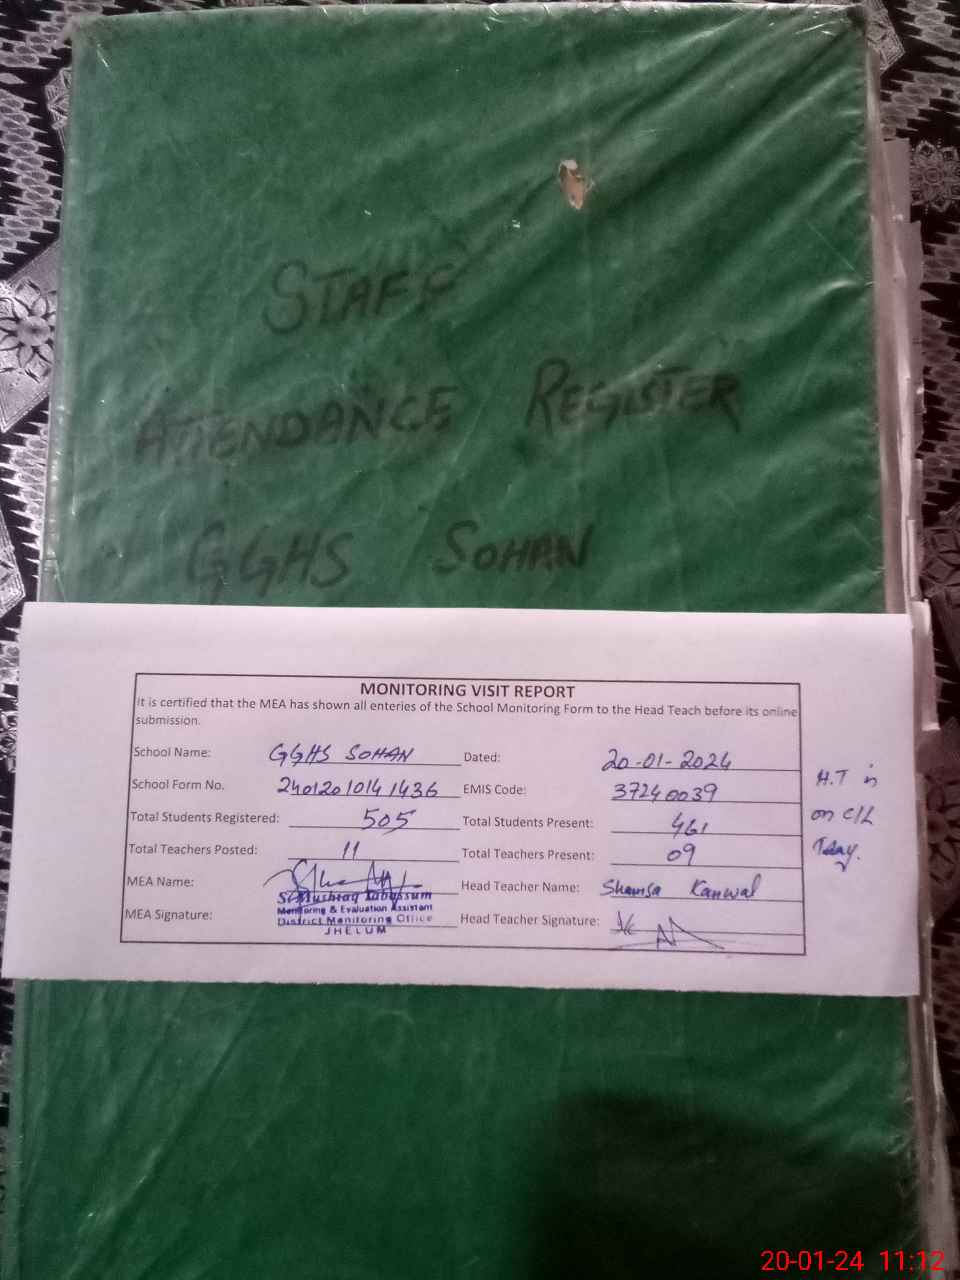 STAFF
ATTENDANCE REGISTER
GGHS SOHAN
MONITORING VISIT REPORT
It is certified that the MEA has shown all enteries of the School Monitoring Form to the Head Teach before its online
submission.
School Name: GGHS SOHAN Dated: 20-01-2024
School Form No. 24012010141436 EMIS Code: 37240039
Total Students Registered: 505 Total Students Present: 461
Total Teachers Posted: 11 Total Teachers Present: 09
MEA Name: Head Teacher Name: Shamsa Kanwal
Mushtaq Tabassum
Monitoring & Evaluation Assistant
MEA Signature: District Monitoring Office Head Teacher Signature:
JHELUM
H.T is
on C/L
Today.
20-01-24 11:12